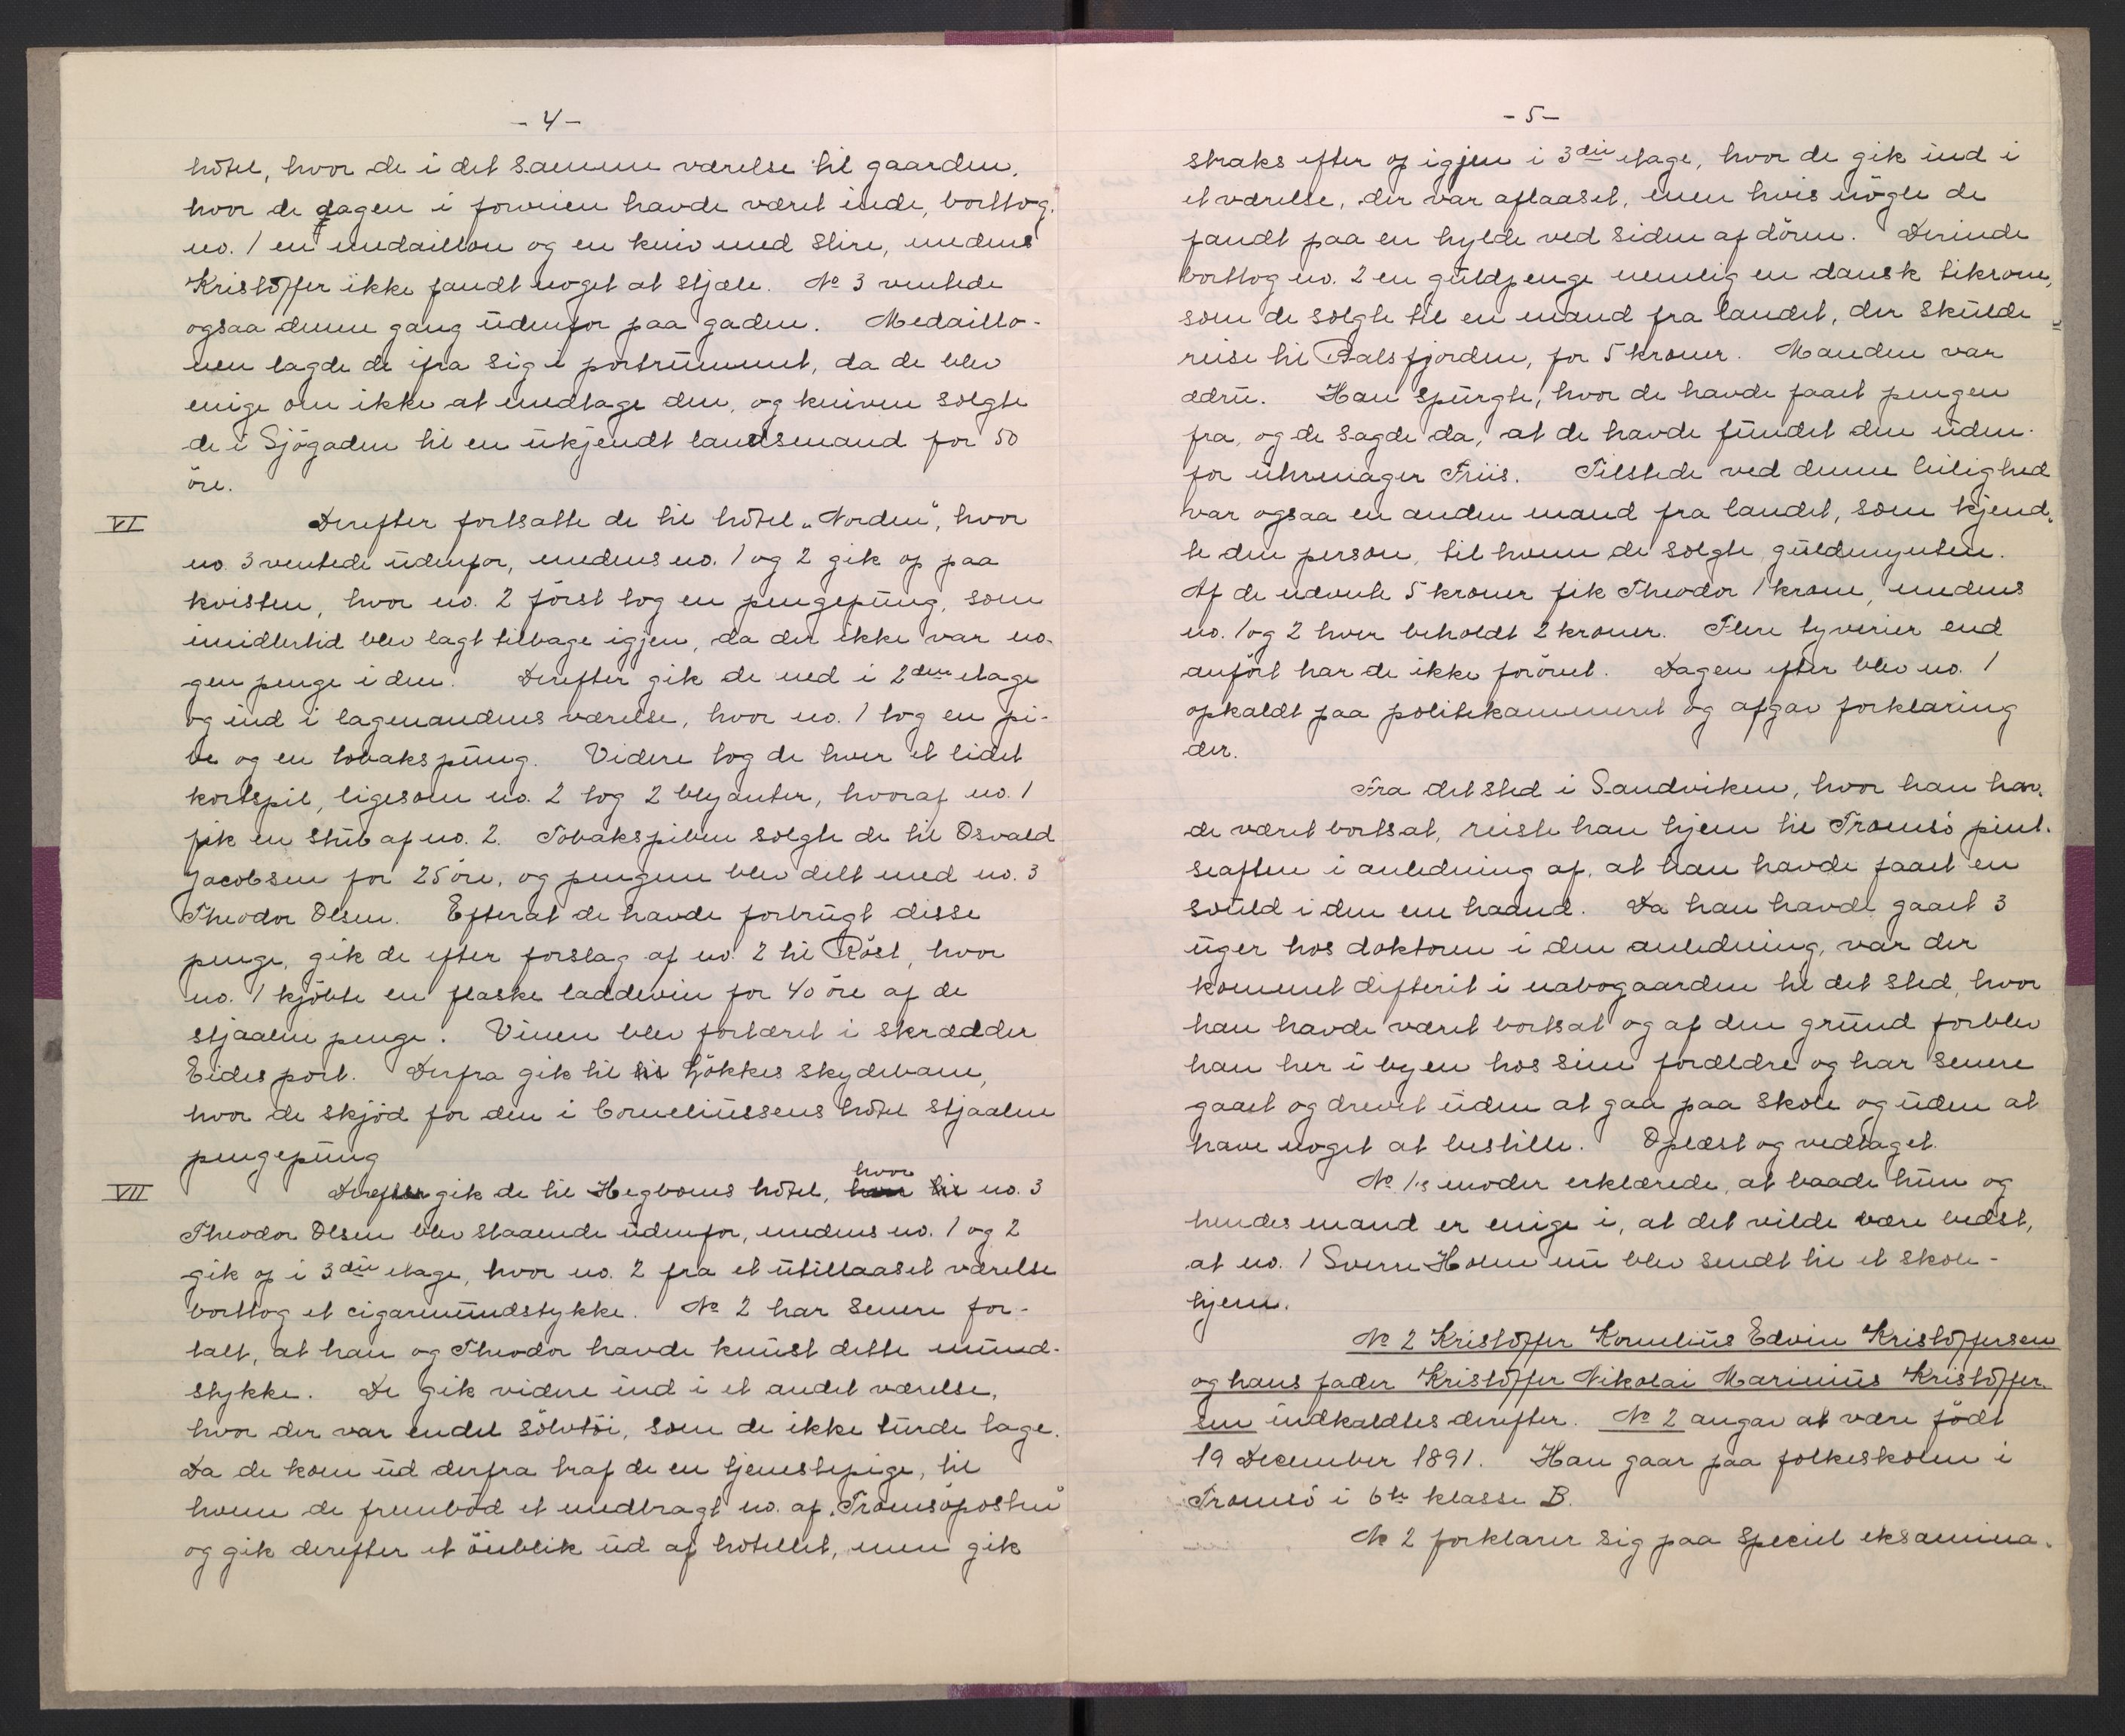 - 4 -
hôtel, hvor de i det samme værelse til gaarden,
hvor de dagen i forveien havde været inde, borttog
no. 1 en medaillon og en kniv med slire, medens
Kristoffer ikke fandt noget at stjæle. No 3 ventede
ogsaa denne gang udenfor paa gaden. Medaillo-
nen lagde de ifra sig i portrummet, da de blev
enige om ikke at medtage den, og kniven solgte
de i Sjøgaden til en ukjendt landsmand for 50
öre.
VI Derefter fortsatte de til hôtel „Norden", hvor
no. 3 ventede udenfor, medens no. 1 og 2 gik op paa
kvisten, hvor no. 2 først tog en pengepung, som
imidlertid blev lagt tilbage igjen, da der ikke var no-
gen penge i den. Derefter gik de ned i 2den etage
og ind i lagmandens værelse, hvor no. 1 tog en pi-
be og en tobakspung. Videre tog de hver et lidet
kortspil, ligesom no. 2 tog 2 blyanter, hvoraf no. 1
fik en stub af no. 2. Tobakspiben solgte de til Osvald
Jacobsen for 25 öre, og pengene blev delt med no. 3
Theodor Olsen. Efterat de havde forbrugt disse
penge, gik de efter forslag af no. 2 til Röst, hvor
no. 1 kjöbte en flaske laddevin for 40 öre af de
stjaalne penge. Vinen blev fortæret i skrædder
Eides port. Derfra gik til til Gjökkes skydebane,
hvor de skjöd for den i Corneliussens hôtel stjaalne
pengepung
VII Derefter gik de til Hegboms hôtel, hvor no. 3
Theodor Olsen blev staaende udenfor, medens no. 1 og 2
gik op i 3die etage, hvor no. 2 fra et utillaaset værelse
borttog et cigarmundstykke. No 2 har senere for-
talt, at han og Theodor havde knust dette mund-
stykke. De gik videre ind i et andet værelse,
hvor der var endel sölvtöi, som de ikke turde tage.
Da de kom ud derfra traf de en tjenestepige, til
hvem de frembød et medbragt no. af „Tromsöposten"
og gik derefter et öieblik ud af hotellet, men gik
- 5 -
straks efter op igjen i 3die etage, hvor de gik ind i
et værelse, der var aflaaset, men hvis nögle de
fandt paa en hylde ved siden af dören. Derinde
borttog no. 2 en guldpenge nemlig en dansk tikrone,
som de solgte til en mand fra landet, der skulde
reise til Balsfjorden, for 5 kroner. Manden var
ædru. Han spurgte, hvor de havde faaet pengen
fra, og de sagde da, at de havde fundet den uden-
for uhrmager Friis. Tilstede ved denne leilighed
var ogsaa en anden mand fra landet, som kjend-
te den person, til hvem de solgte guldmynten.
Af de nævnte 5 kroner fik Theodor 1 krone, medens
no. 1 og 2 hver beholdt 2 kroner. Flere tyverier end
anført har de ikke forövet. Dagen efter blev no. 1
opkaldt paa politikammeret og afgav forklaring
der.
Fra det sted i Sandviken, hvor han hav-
de været bortsat, reiste han hjem til Tromsö pint-
seaften i anledning af, at han havde faaet en
svuld i den ene haand. Da han havde gaaet 3
uger hos doktoren i den anledning, var der
kommet difterit i nabogaarden til det sted, hvor
han havde været bortsat og af den grund forblev
han her i byen hos sine forældre og har senere
gaaet og drevet uden at gaa paa skole og uden at
have noget at bestille. Oplæst og vedtaget.
No 1's moder erklærede, at baade hun og
hendes mand er enige i, at det vilde være bedst,
at no. 1 Sverre Holm nu blev sendt til et skole-
hjem.
No 2 Kristoffer Kornelius Edvin Kristoffersen
og hans fader Kristoffer Nikolai Marinius Kristoffer-
sen indkaldtes derefter. No 2 angav at være födt
19 December 1891. Han gaar paa folkeskolen i
Tromsö i 6te klasse B.
No 2 forklarer sig paa speciel eksamina-